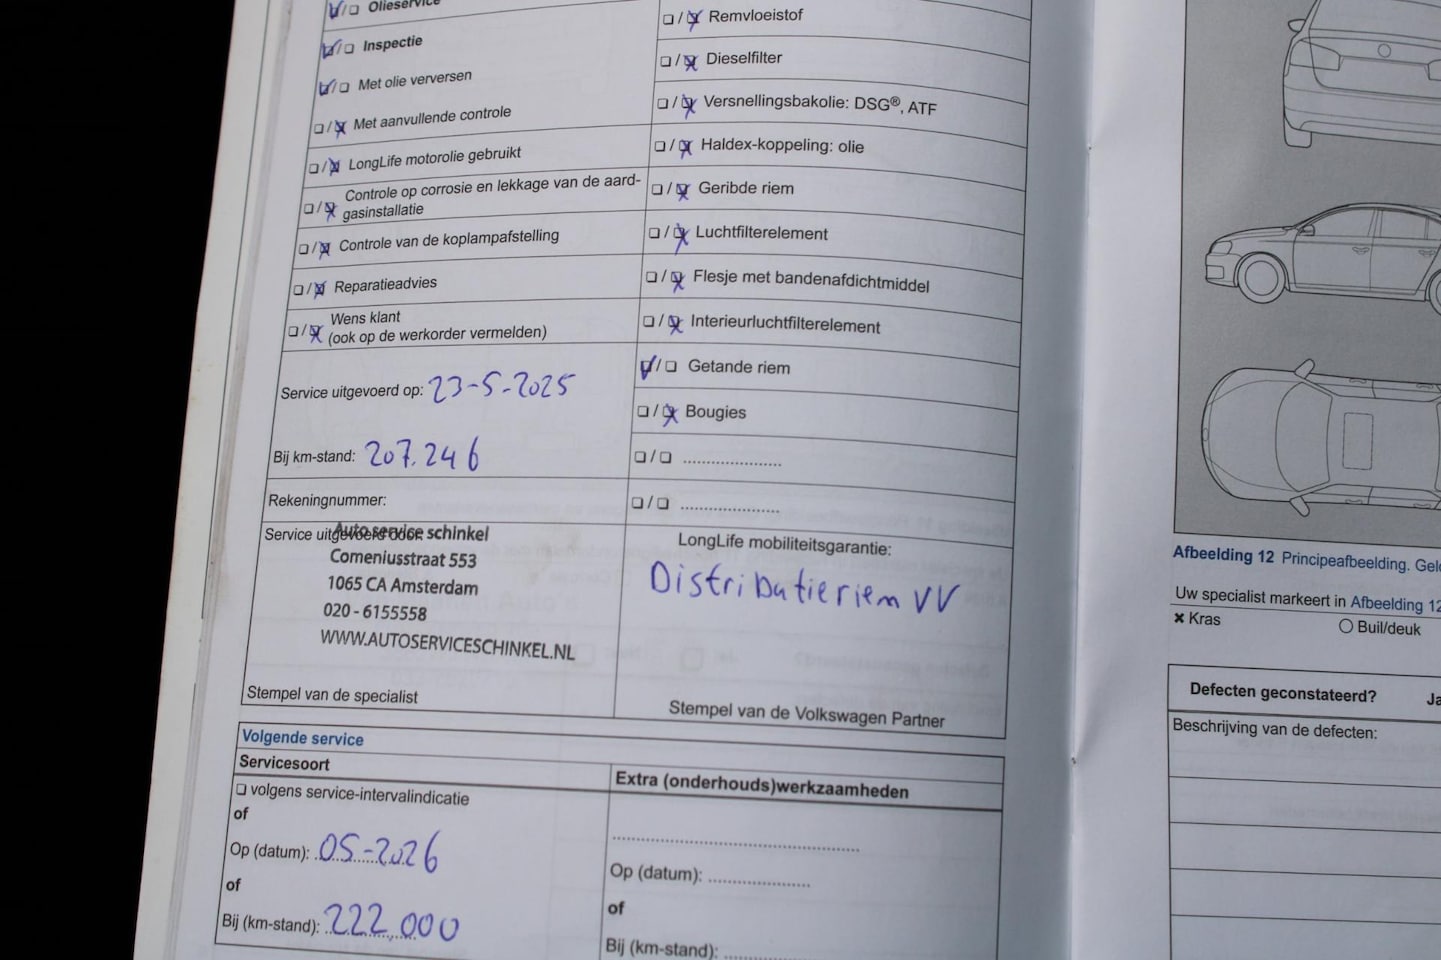 Olieservice
Inspectie
Met olie verversen
Met aanvullende controle
LongLife motorolie gebruikt
Controle op corrosie en lekkage van de aard-
gasinstallatie
Controle van de koplampafstelling
Reparatieadvies
Wens klant
(ook op de werkorder vermelden)
Service uitgevoerd op: 23-5-2025
Bij km-stand: 207.246
Rekeningnummer:
Service uitgevoerd door:
Auto service schinkel
Comeniusstraat 553
1065 CA Amsterdam
020 - 6155558
WWW.AUTOSERVICESCHINKEL.NL
Stempel van de specialist
Remvloeistof
Dieselfilter
Versnellingsbakolie: DSG®, ATF
Haldex-koppeling: olie
Geribde riem
Luchtfilterelement
Flesje met bandenafdichtmiddel
Interieurluchtfilterelement
Getande riem
Bougies
LongLife mobiliteitsgarantie:
Distributieriem VV
Stempel van de Volkswagen Partner
Volgende service
Servicesoort
volgens service-intervalindicatie
of
Op (datum): 05-2026
of
Bij (km-stand): 222.000
Extra (onderhouds)werkzaamheden
Op (datum):
of
Bij (km-stand):
Afbeelding 12 Principeafbeelding.
Uw specialist markeert in Afbeelding 12
Kras
Buil/deuk
Defecten geconstateerd? Ja
Beschrijving van de defecten: